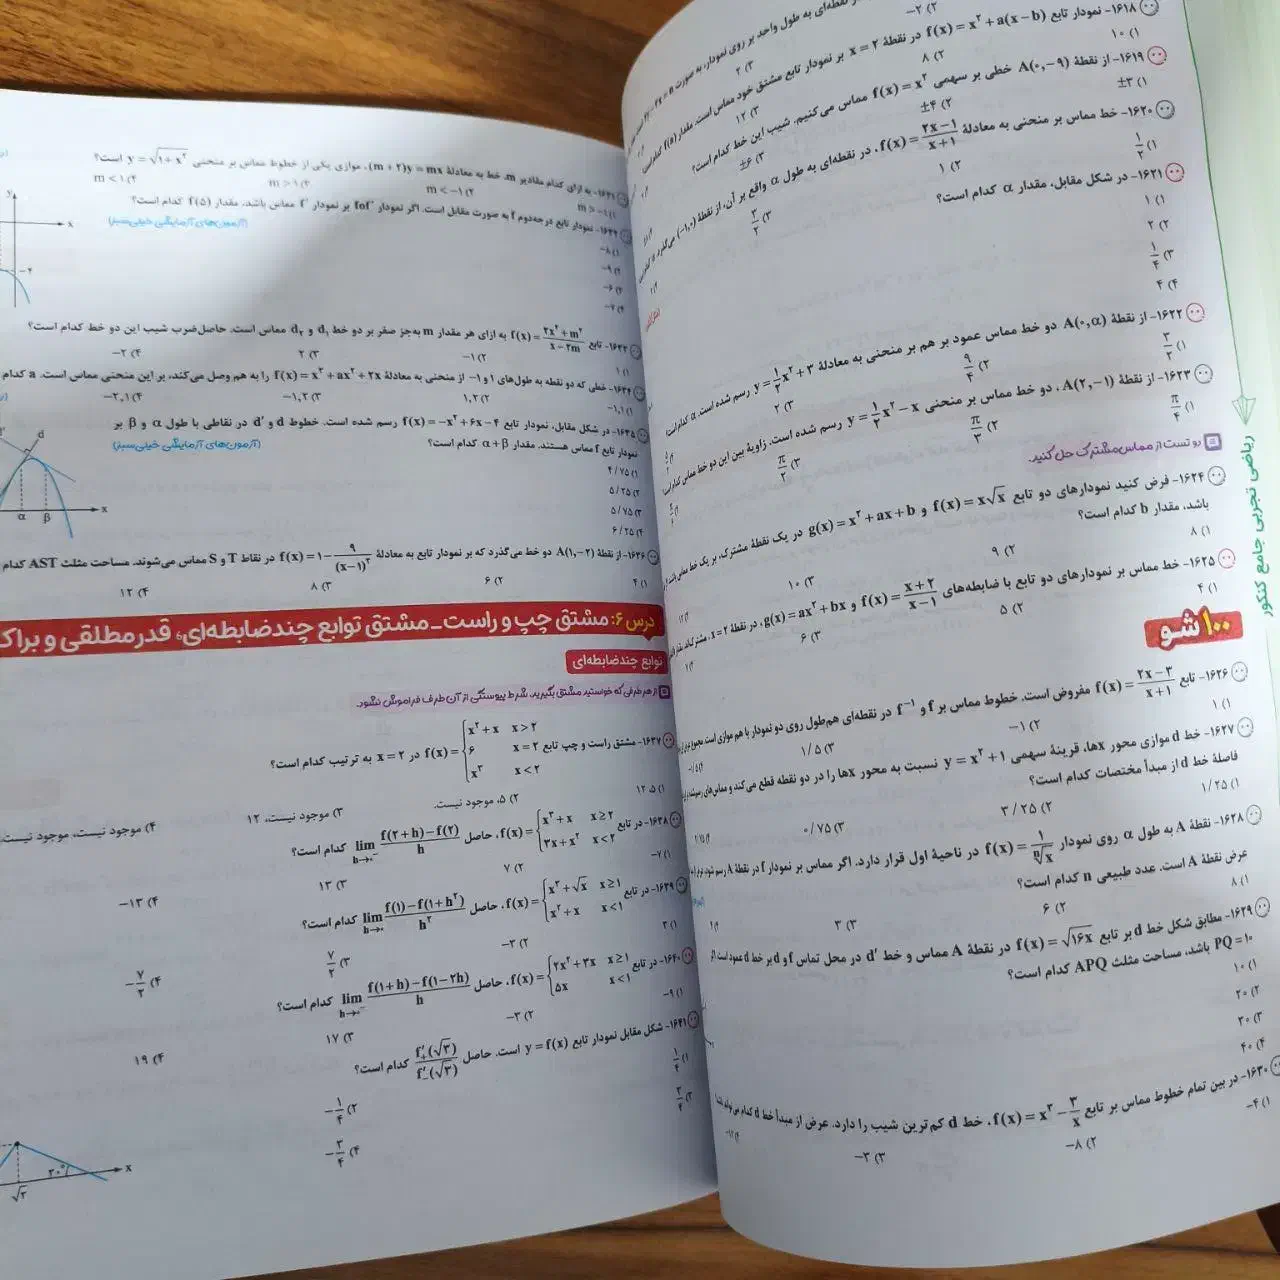 نقطه‌ای به طول واحد بر روی نمودار، به صورت
۲) -۲
۳) ۲
۱۶۱۸- نمودار تابع f(x) = x² + a(x-b) در نقطهٔ x = ۲ بر نمودار تابع مشتق خود مماس است. مقدار f(a) کدام است؟
۱) ۱۰
۲) ۸
۳) ۱۲
۱۶۱۹- از نقطهٔ A(۰,-۹) خطی بر سهمی f(x) = x² مماس می‌کنیم. شیب این خط کدام است؟
۱) ±۳
۲) ±۴
۳) ±۶
۱۶۲۰- خط مماس بر منحنی به معادلهٔ f(x) = (۲x-۱)/(x+۱)، در نقطه‌ای به طول α واقع بر آن، از نقطهٔ (-۱,۰) می‌گذرد.
۱) ۱/۲
۲) ۱
۳) ۳/۲
۱۶۲۱- در شکل مقابل، مقدار α کدام است؟
۱) ۱
۲) ۲
۳) ۱/۴
۴) ۴
۱۶۲۲- از نقطهٔ A(۰,α) دو خط مماس عمود بر هم بر منحنی به معادلهٔ y = ۱/۲x² + ۳ رسم شده است. α کدام است؟
۱) ۳/۲
۲) ۹/۴
۳) ۲
۱۶۲۳- از نقطهٔ A(۲,-۱)، دو خط مماس بر منحنی y = ۱/۲x² - x رسم شده است. زاویهٔ بین این دو خط مماس کدام است؟
۱) π/۴
۲) π/۳
۳) π/۲
دو تست از مماس مشترک حل کنید.
۱۶۲۴- فرض کنید نمودارهای دو تابع f(x) = x√x و g(x) = x² + ax + b در یک نقطهٔ مشترک، بر یک خط مماس
باشد، مقدار b کدام است؟
۱) ۸
۲) ۹
۳) ۱۰
۱۶۲۵- خط مماس بر نمودارهای دو تابع با ضابطه‌های f(x) = (x+۲)/(x-۱) و g(x) = ax² + bx، در نقطهٔ x = ۲، مشترک‌اند.
۱) ۴
۲) ۵
۳) ۶
۱۰۰ شو
۱۶۲۶- تابع f(x) = (۲x-۳)/(x+۱) مفروض است. خطوط مماس بر f و f⁻¹ در نقطه‌ای هم‌طول روی دو نمودار با هم موازی است.
۱) ۱
۲) -۱
۳) ۱/۵
۱۶۲۷- خط d موازی محور xها، قرینهٔ سهمی y = x² + ۱ نسبت به محور xها را در دو نقطه قطع می‌کند و مماس‌های
فاصلهٔ خط d از مبدأ مختصات کدام است؟
۱) ۱/۲۵
۲) ۳/۲۵
۳) ۰/۷۵
۱۶۲۸- نقطهٔ A به طول α روی نمودار f(x) = ۱/ⁿ√x در ناحیهٔ اول قرار دارد. اگر مماس بر نمودار f در نقطهٔ A رسم شود،
عرض نقطهٔ A است. عدد طبیعی n کدام است؟
۱) ۸
۲) ۶
۳) ۳
۱۶۲۹- مطابق شکل خط d بر تابع f(x) = √۱۶x در نقطهٔ A مماس و خط d′ در محل تماس f و d بر خط d عمود است.
PQ = ۱۰ باشد، مساحت مثلث APQ کدام است؟
۱) ۱۰
۲) ۲۰
۳) ۳۰
۴) ۴۰
۱۶۳۰- در بین تمام خطوط مماس بر تابع f(x) = x³ - ۳/x، خط d کم‌ترین شیب را دارد. عرض از مبدأ خط d کدام می‌تواند باشد؟
۱) -۴
۲) -۸
۳) -۳
ریاضی تجربی جامع کنکور
۱۶۳۱- به ازای کدام مقادیر m، خط به معادلهٔ (m+۲)y = mx، موازی یکی از خطوط مماس بر منحنی y = √(۱+x²) است؟
۱) m > -۱
۲) m < -۱
۳) m > ۱
۴) m < ۱
۱۶۳۲- نمودار تابع درجه‌دوم f به صورت مقابل است. اگر نمودار fof′ بر نمودار f′ مماس باشد، مقدار f(۵) کدام است؟
(آزمون‌های آزمایشی خیلی‌سبز)
۱) -۸
۲) -۹
۳) -۶
۴) -۷
y
x
-۴
۱۶۳۳- تابع f(x) = (۲x² + m²)/(x-۲m) به ازای هر مقدار m به‌جز صفر بر دو خط d₁ و d₂ مماس است. حاصل‌ضرب شیب این دو خط کدام است؟
۱) ۱
۲) -۱
۳) ۲
۴) -۲
۱۶۳۴- خطی که دو نقطه به طول‌های ۱ و -۱ از منحنی به معادلهٔ f(x) = x³ + ax² + ۲x را به هم وصل می‌کند، بر این منحنی مماس است. a کدام
۱) -۱,۱
۲) ۱,۲
۳) -۱,۲
۴) -۲,۱
۱۶۳۵- در شکل مقابل، نمودار تابع f(x) = -x² + ۶x - ۴ رسم شده است. خطوط d و d′ در نقاطی با طول α و β بر
نمودار تابع f مماس هستند. مقدار α + β کدام است؟
(آزمون‌های آزمایشی خیلی‌سبز)
۱) ۴/۷۵
۲) ۵/۲۵
۳) ۵/۷۵
۴) ۶/۲۵
d
α β x
۱۶۳۶- از نقطهٔ A(۱,-۲) دو خط می‌گذرد که بر نمودار تابع به معادلهٔ f(x) = ۱ - ۹/(x-۱)² در نقاط T و S مماس می‌شوند. مساحت مثلث AST کدام
۱) ۴
۲) ۶
۳) ۸
۴) ۱۲
درس ۶: مشتق چپ و راست - مشتق توابع چندضابطه‌ای، قدرمطلقی و براک
توابع چندضابطه‌ای
از هر طرفی که خواستید مشتق بگیرید، شرط پیوستگی از آن طرف فراموش نشود.
۱۶۳۷- مشتق راست و چپ تابع f(x) = { x² + x x > ۲ ; ۶ x = ۲ ; x³ x < ۲ در x = ۲ به ترتیب کدام است؟
۱) ۵، ۱۲
۲) ۵، موجود نیست.
۳) موجود نیست، ۱۲
۴) موجود نیست، موجود نیست
۱۶۳۸- در تابع f(x) = { x² + x x ≥ ۲ ; ۳x + x² x < ۲، حاصل lim h→۰⁻ (f(۲+h) - f(۲))/h کدام است؟
۱) -۷
۲) ۷
۳) ۱۳
۴) -۱۳
۱۶۳۹- در تابع f(x) = { x² + √x x ≥ ۱ ; x² + x x < ۱، حاصل lim h→۰ (f(۱) - f(۱+h²))/h² کدام است؟
۱) ۳
۲) -۳
۳) ۷/۲
۴) -۷/۲
۱۶۴۰- در تابع f(x) = { ۲x² + ۳x x ≥ ۱ ; ۵x x < ۱، حاصل lim h→۰⁻ (f(۱+h) - f(۱-۲h))/h کدام است؟
۱) -۹
۲) -۳
۳) ۱۷
۴) ۱۹
۱۶۴۱- شکل مقابل نمودار تابع y = f(x) است. حاصل f′₊(√۳)/f′₋(√۳) کدام است؟
۱) ۱/۴
۲) -۱/۴
۳) ۳/۴
۴) -۳/۴
۳۰° x
√۳